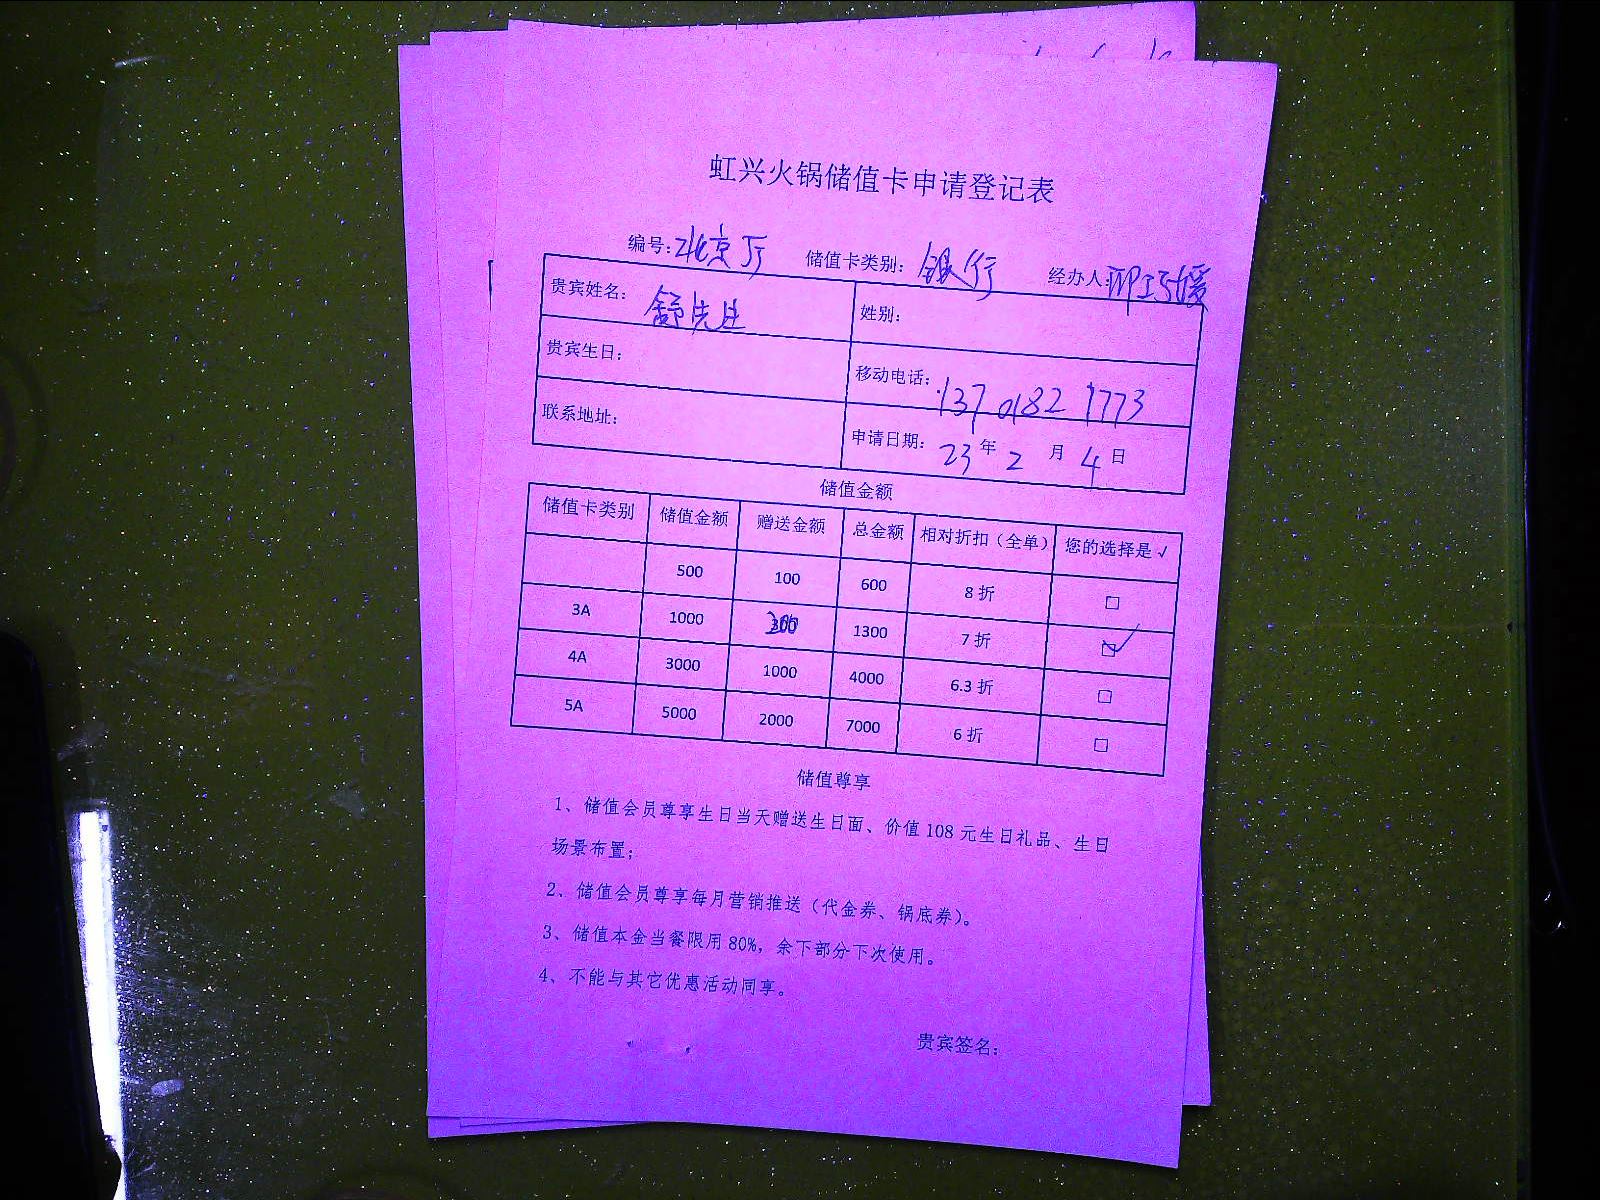 虹兴火锅储值卡申请登记表
编号：北京厅 储值卡类别：银行 经办人：巧媛
贵宾姓名：舒先生 姓别：
贵宾生日： 移动电话：137 0182 1773
联系地址： 申请日期：23年2月4日
储值金额
储值卡类别 储值金额 赠送金额 总金额 相对折扣（全单） 您的选择是√
500 100 600 8折 □
3A 1000 300 1300 7折 ☑
4A 3000 1000 4000 6.3折 □
5A 5000 2000 7000 6折 □
储值尊享
1、储值会员尊享生日当天赠送生日面、价值108元生日礼品、生日
场景布置；
2、储值会员尊享每月营销推送（代金券、锅底券）。
3、储值本金当餐限用80%，余下部分下次使用。
4、不能与其它优惠活动同享。
贵宾签名：